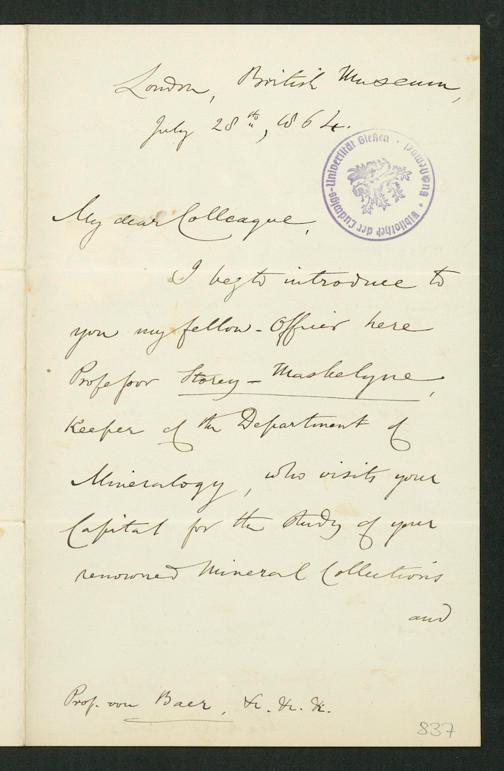 London, British Museum,
July 28th, 1864.
Bibliothek der Ludwigs-Universität Gießen
My dear Colleague,
I beg to introduce to
you my fellow-Officer here
Professor Storey-Maskelyne,
Keeper of the Department of
Mineralogy, who visits your
Capital for the study of your
renowned Mineral Collections
and
Prof. von Baer, &c. &c. &c.
837